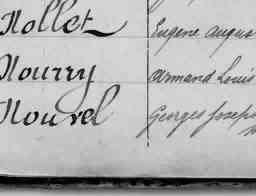 Nollet Eugène augus
Nourry Armand Louis
Nouvel Georges Joseph